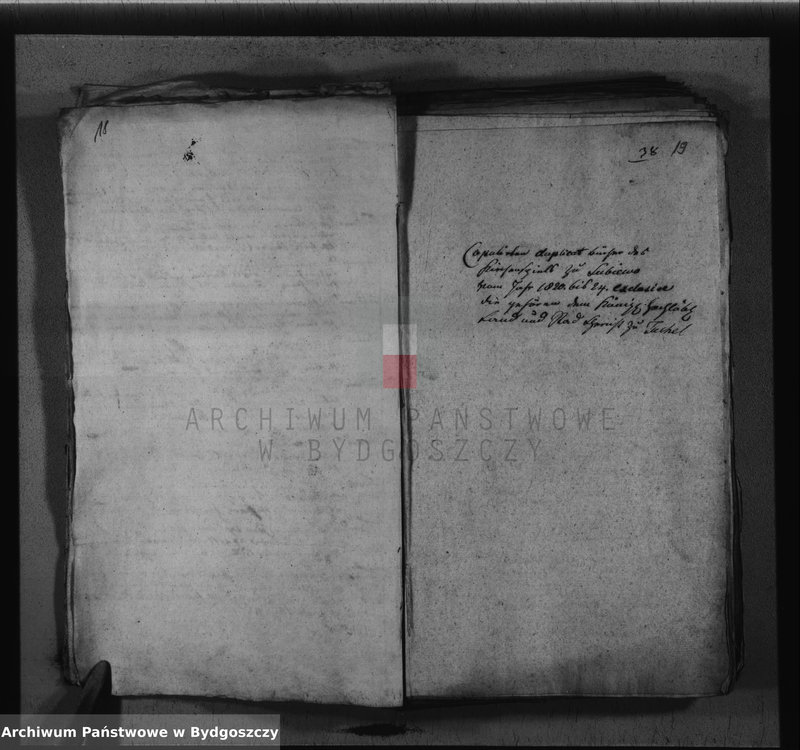 18
38 19
Copulirten duplicat bücher des
Kirchenspiels zu Lubiewo
vom Jahr 1820. bis 24. exclusive
die gehören dem Königl.
Land und Stad Gericht zu Tuchel
ARCHIWUM PAŃSTWOWE
W BYDGOSZCZY
Archiwum Państwowe w Bydgoszczy